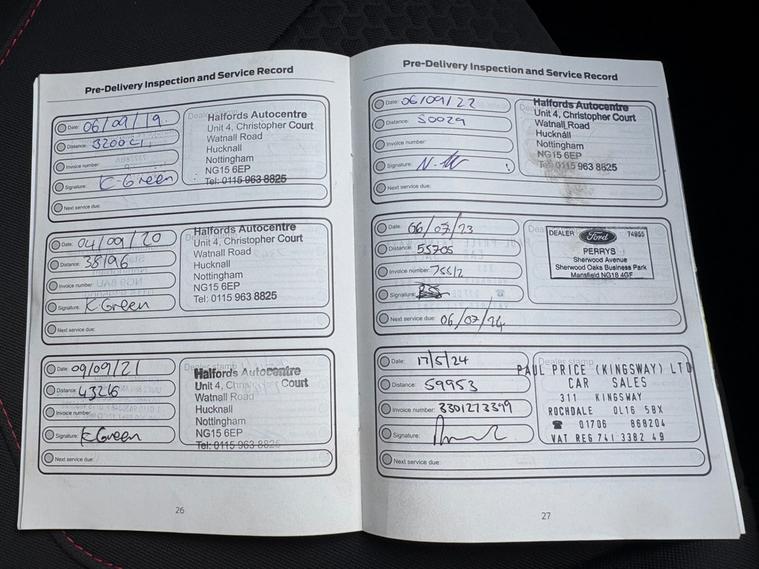 Pre-Delivery Inspection and Service Record
Date: 06/09/19
Distance:
Invoice number:
Signature: K-Green
Next service due:
Halfords Autocentre
Unit 4, Christopher Court
Watnall Road
Hucknall
Nottingham
NG15 6EP
Tel: 0115 963 8825
Date: 04/09/20
Distance: 38196
Invoice number:
Signature: K-Green
Next service due:
Halfords Autocentre
Unit 4, Christopher Court
Watnall Road
Hucknall
Nottingham
NG15 6EP
Tel: 0115 963 8825
Date: 09/09/21
Distance: 43216
Invoice number:
Signature: K-Green
Next service due:
Halfords Autocentre
Unit 4, Court
Watnall Road
Hucknall
Nottingham
NG15 6EP
Tel: 0115 963 8825
26
Pre-Delivery Inspection and Service Record
Date: 06/09/22
Distance: 50029
Invoice number:
Signature:
Next service due:
Halfords Autocentre
Unit 4, Christopher Court
Watnall Road
Hucknall
Nottingham
NG15 6EP
Tel: 0115 963 8825
Date: 06/07/23
Distance: 55705
Invoice number:
Signature:
Next service due: 06/07/24
DEALER Ford
PERRYS
Sherwood Avenue
Sherwood Oaks Business Park
Mansfield NG18 4GF
Date: 17/5/24
Distance: 59953
Invoice number: 3301273399
Signature:
Next service due:
Dealer stamp
PAUL PRICE (KINGSWAY) LTD
CAR SALES
311 KINGSWAY
ROCHDALE OL16 5BX
☎ 01706 868204
VAT REG 741 3382 49
27